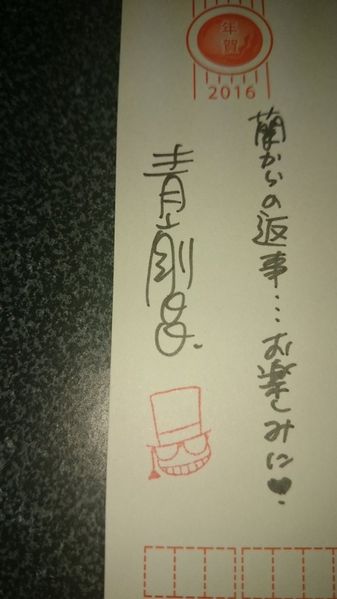 年賀
2016
蘭からの返事…お楽しみに♥.
青山剛昌.